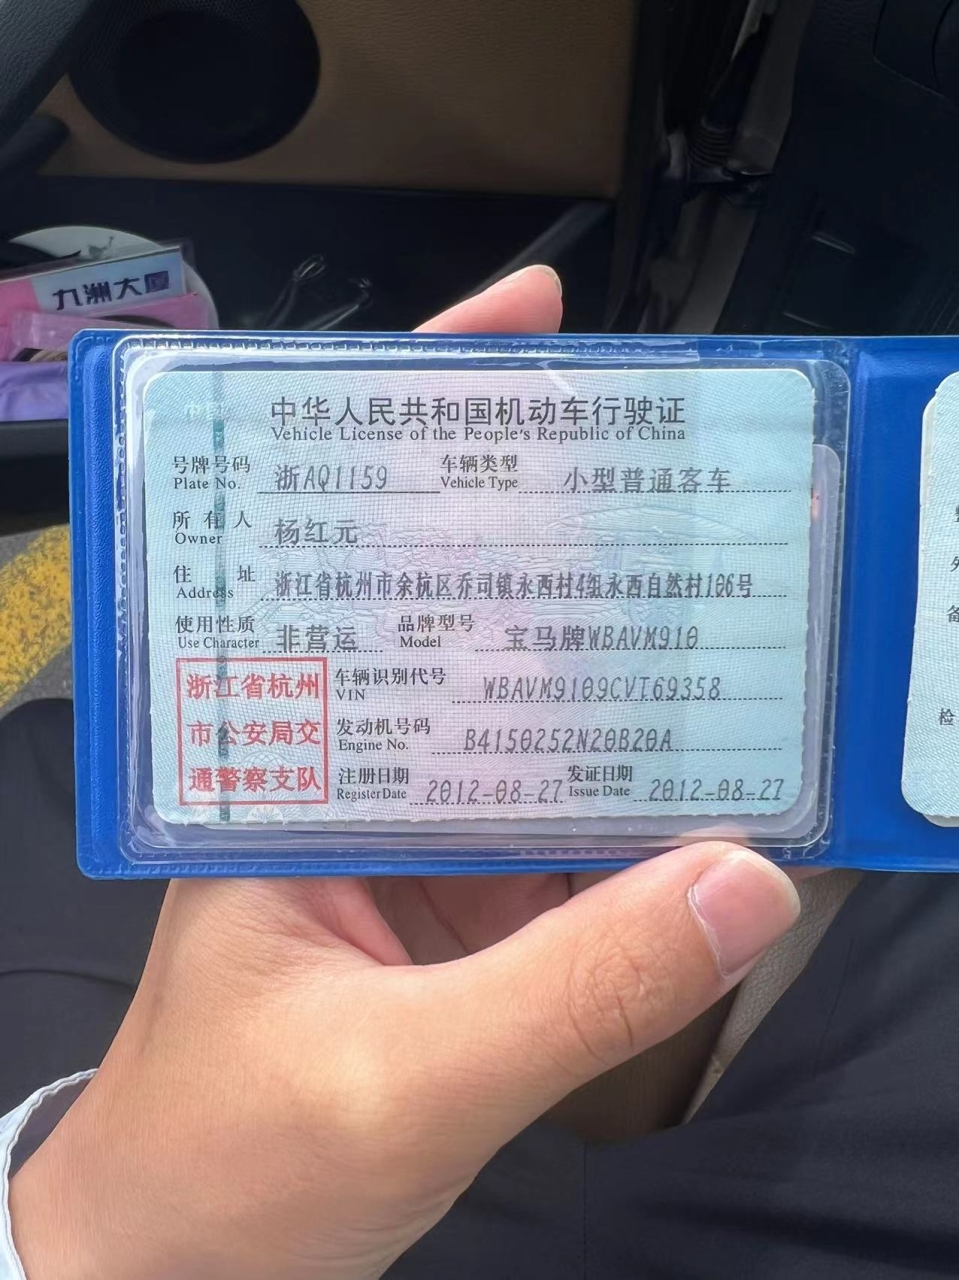 九洲大厦
中华人民共和国机动车行驶证
Vehicle License of the People's Republic of China
号牌号码 浙AQ1159 车辆类型 小型普通客车
Plate No. Vehicle Type
所有人 杨红元
Owner
住址 浙江省杭州市余杭区乔司镇永西村4组永西自然村106号
Address
使用性质 非营运 品牌型号 宝马牌WBAVM910
Use Character Model
浙江省杭州
市公安局交
通警察支队
车辆识别代号 WBAVM9109CVT69358
VIN
发动机号码 B4150252N20B20A
Engine No.
注册日期 2012-08-27 发证日期 2012-08-27
Register Date Issue Date
备
检